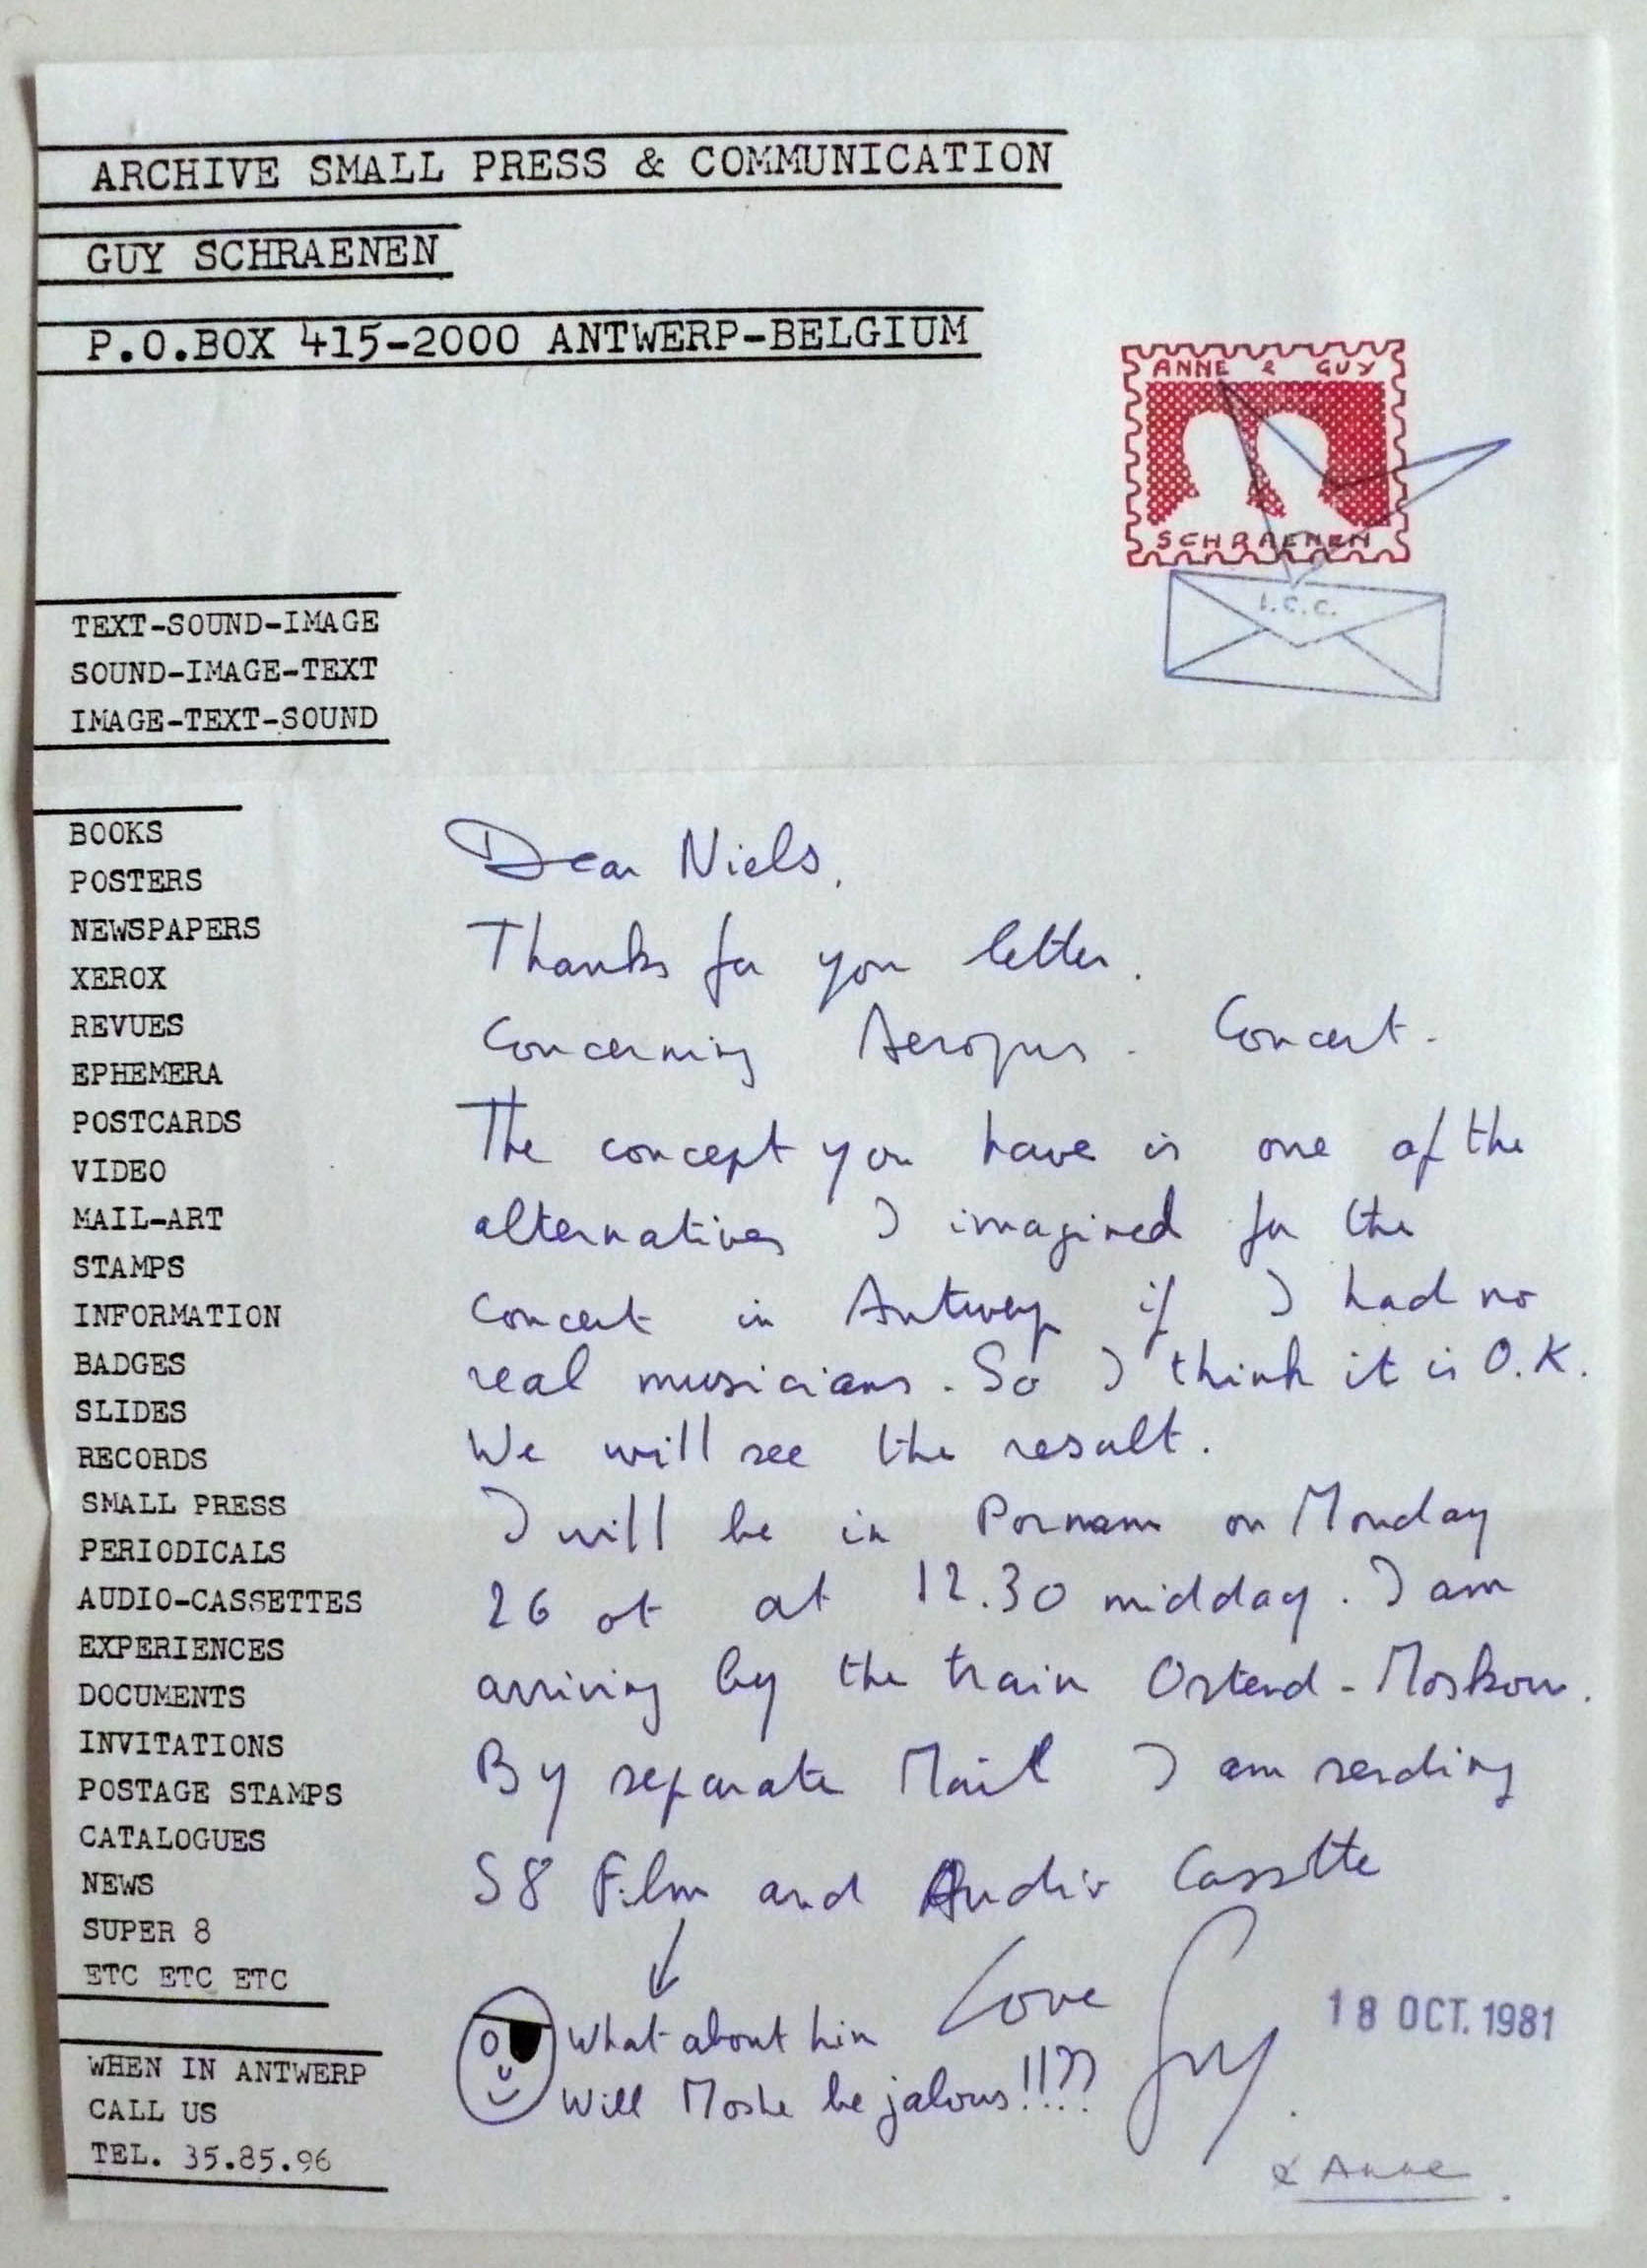 ARCHIVE SMALL PRESS & COMMUNICATION
GUY SCHRAENEN
P.O.BOX 415-2000 ANTWERP-BELGIUM
ANNE & GUY
SCHRAENEN
I.C.C.
TEXT-SOUND-IMAGE
SOUND-IMAGE-TEXT
IMAGE-TEXT-SOUND
BOOKS
POSTERS
NEWSPAPERS
XEROX
REVUES
EPHEMERA
POSTCARDS
VIDEO
MAIL-ART
STAMPS
INFORMATION
BADGES
SLIDES
RECORDS
SMALL PRESS
PERIODICALS
AUDIO-CASSETTES
EXPERIENCES
DOCUMENTS
INVITATIONS
POSTAGE STAMPS
CATALOGUES
NEWS
SUPER 8
ETC ETC ETC
WHEN IN ANTWERP
CALL US
TEL. 35.85.96
Dear Niels,
Thanks for your letter.
Concerning Aeropus - Concert.
The concept you have is one of the
alternatives I imagined for the
concert in Antwerp if I had no
real musicians. So I think it is O.K.
We will see the result.
I will be in on Monday
26 ot at 12.30 midday. I am
arriving by the train Ostend - Moskow.
By separate Mail I am sending
S8 Film and Audio Cassette
What about him
Will Moshe be jalous!!??
Love Guy
18 OCT. 1981
& Anne